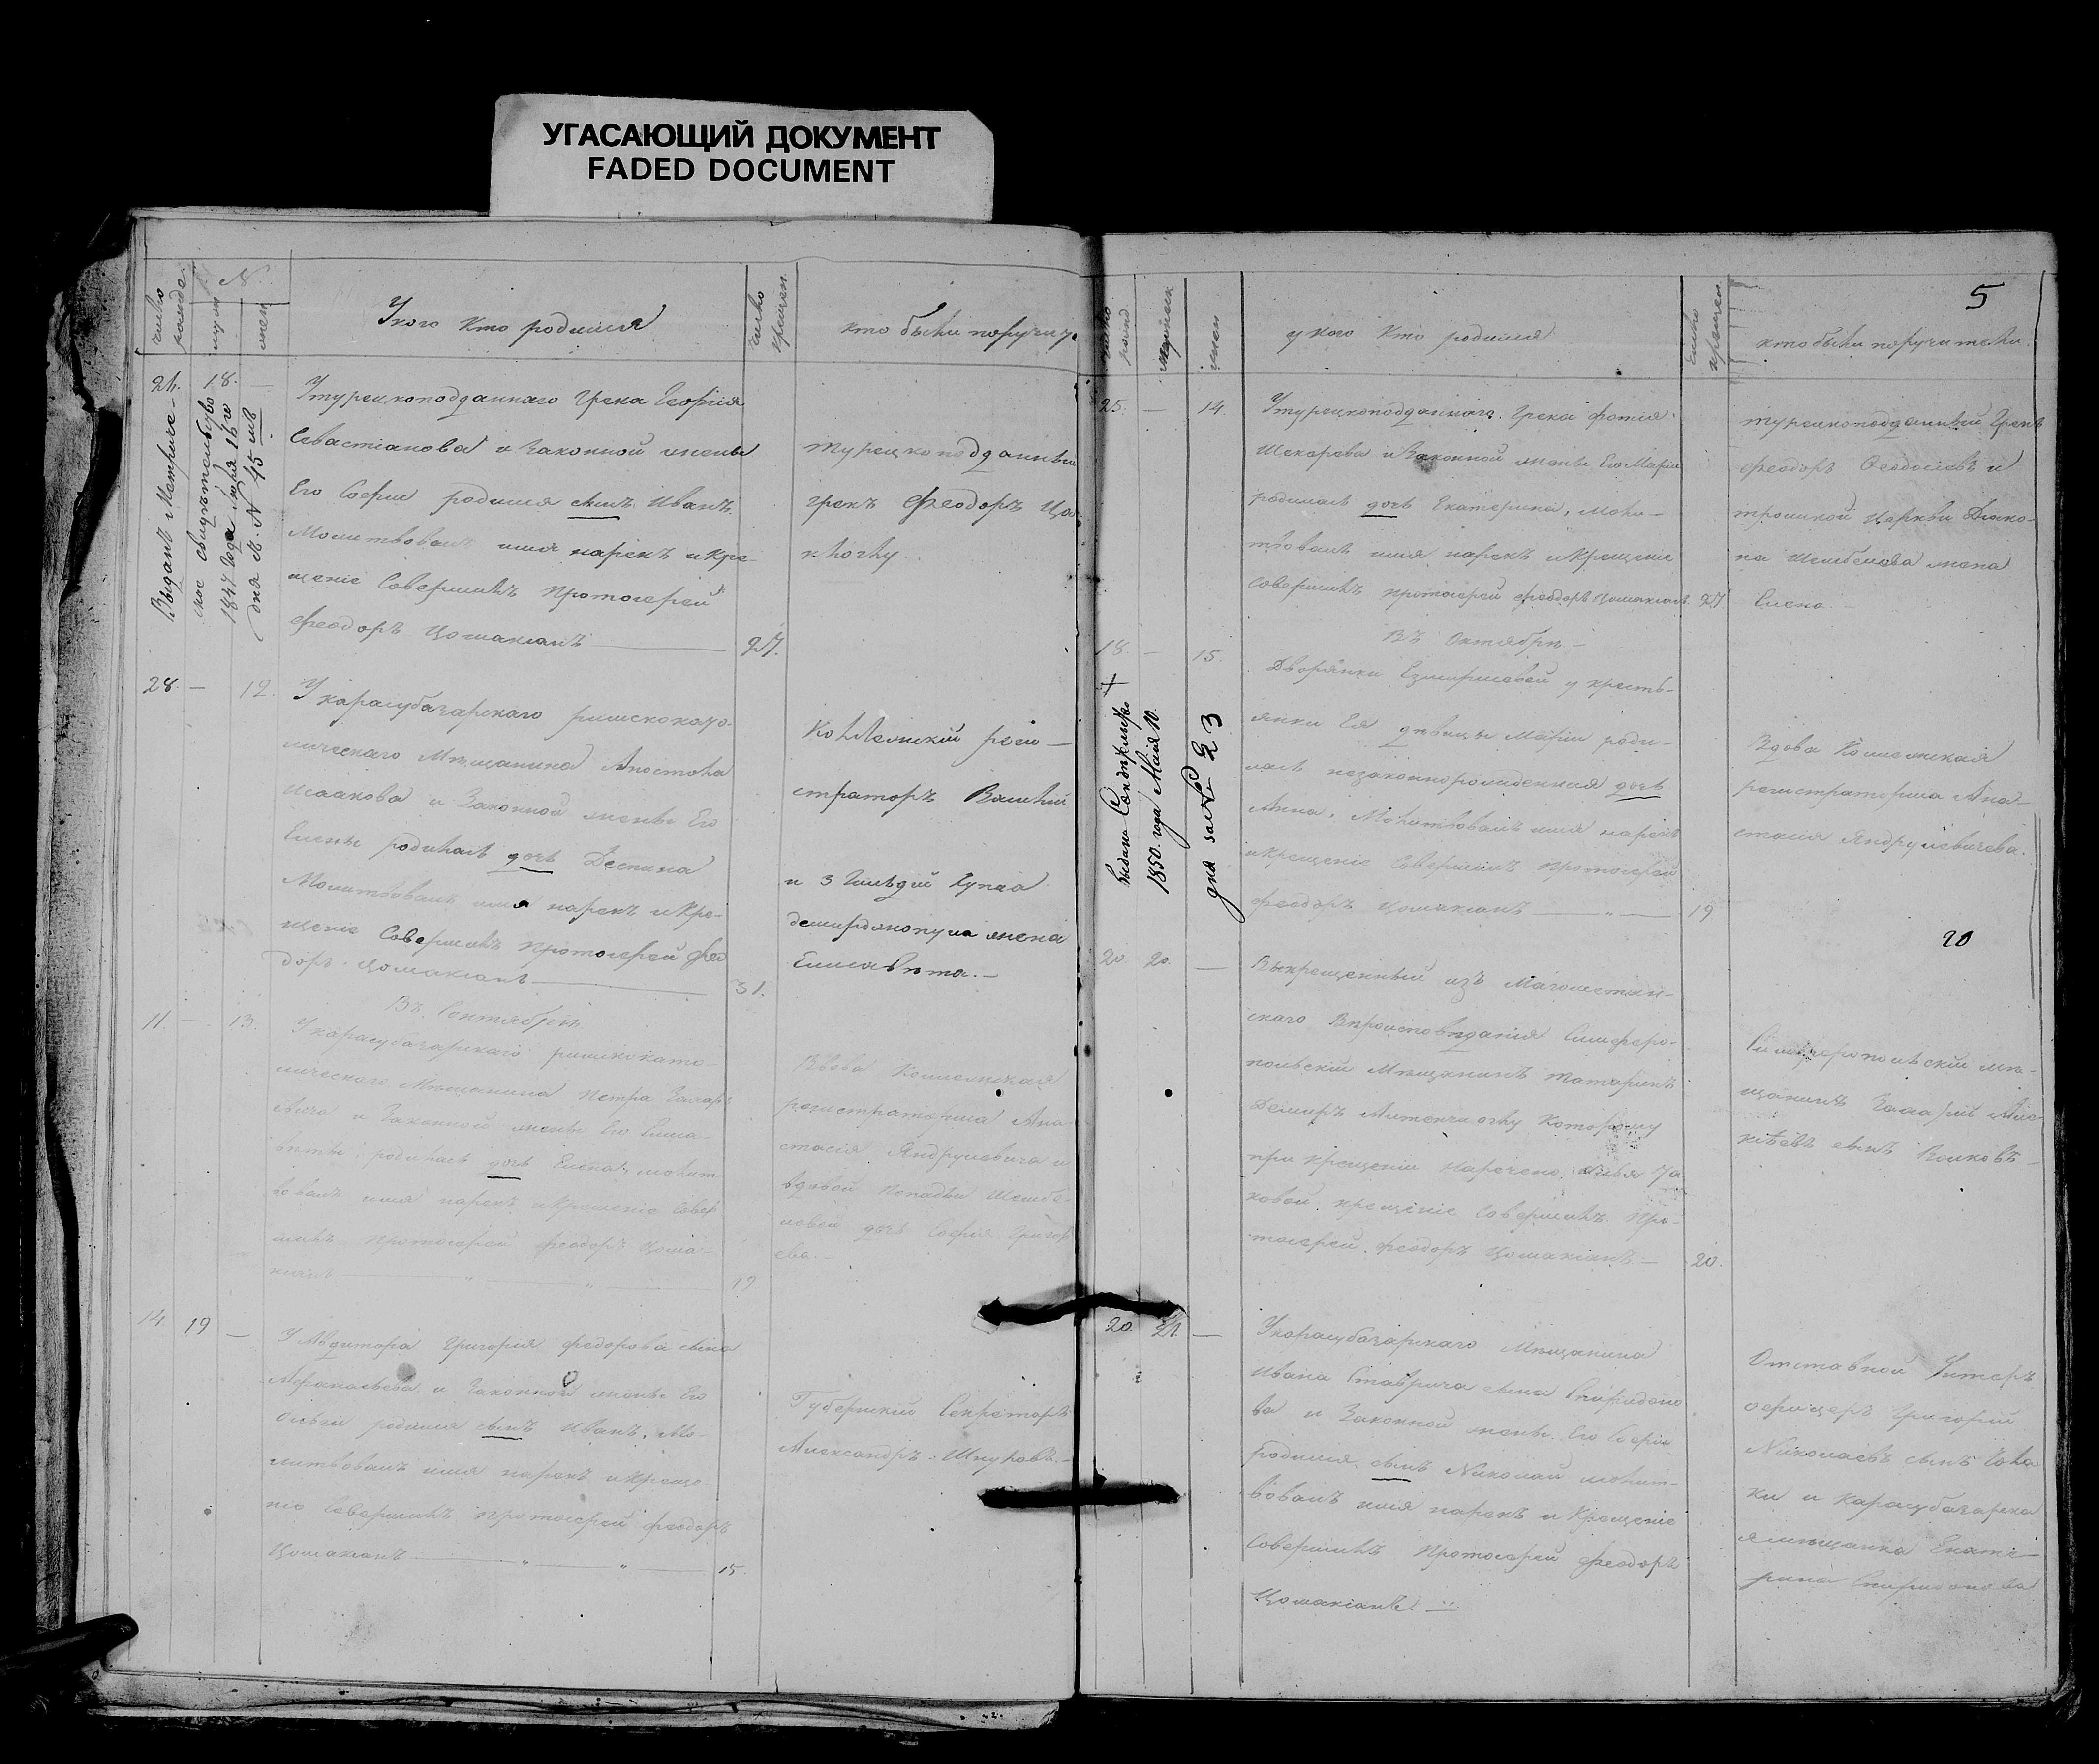 УГАСАЮЩИЙ ДОКУМЕНТ
FADED DOCUMENT
число рожде
N
муж
жен
У кого кто родился
число крещен.
кто были поручит
24. 18. —
Выданъ Метриче-
ское свидѣтельство
1847 года 16го
дня N 45
У турецкоподданнаго Грека Георгія
Севастіанова и законной жены
Его Софіи родился сынъ Иванъ
Молитвовалъ имя нарекъ и кре-
щеніе совершилъ Протоіерей
Феодоръ Цомакіанъ
27.
турецкоподданный
грекъ Феодоръ Цо
28. — 12.
У карасубазарскаго римскокато-
лическаго Мѣщанина Апостола
Исаакова и Законной жены Его
Елены родилась дочь Деспина
Молитвовалъ имя нарекъ и кре-
щеніе Совершилъ Протоіерей Фео
доръ Цомакіанъ
31.
Коллежскій реги-
страторъ Василій
и 3 Гильдій купца
жена
Елисавѣта.—
Въ Сентябрѣ
11. — 13.
У карасубазарскаго римскокато-
лическаго Мѣщанина Петра
и Законной жены Его Елиса-
вѣты, родилась дочь Елена, молит-
вовалъ имя нарекъ и крещеніе Совер
шилъ Протоіерей Феодоръ Цома-
кіанъ
19
Вдова Коллежская
регистраторша Ана
стасія Яндрулевичева и
вдовой Попадьи
дочь Софія Григор
ева.—
14. 19 —
У Авдитора Григорія Федорова сына
Афанасьева и Законной жены Его
Ольги родился сынъ Иванъ, Мо-
литвовалъ имя нарекъ и креще-
ніе Совершилъ протоіерей Феодоръ
Цомакіанъ
15.
Губернскій Секретарь
Александръ Шнуровъ.—
5
число рожд
мужеск
жен
у кого кто родился
число крещен.
кто были поручители.
25. — 14.
У турецкоподданнаго Грека Фотія
Шекерева и Законной жены Его Маріи
родилась дочь Екатерина, моли-
твовалъ имя нарекъ и крещеніе
совершилъ протоіерей Феодоръ Цомакіанъ 27
турецкоподданный Грекъ
Феодоръ Феодосіевъ и
троицкой Церкви Дьяко-
на жена
Елена
Въ Октябрѣ —
18. — 15.
1850 года Мая 10.
дня за № 23
Дворянки у кресть-
янки Ея дѣвицы Маріи роди-
лась незаконнорожденная дочь
Анна. Молитвовалъ имя нарекъ
и крещеніе Совершилъ Протоіерей
Феодоръ Цомакіанъ
19
Вдова Коллежская
регистраторша Ана-
стасія Яндрулевичева.
20
20. 20. —
Выкрещенный изъ Магометан-
скаго Вѣроисповѣданія Симферо-
польскій Мѣщанинъ татаринъ
Демиръ Которому
при крещеніи наречено имя
крещеніе Совершилъ Про-
тоіерей Феодоръ Цомакіанъ.—
20.
Симферопольскій мѣ-
щанинъ Алек
сѣевъ сынъ Волковъ
20. 21. —
У карасубазарскаго Мѣщанина
Ивана Ставрича сына Спиридоно
ва и Законной жены Его Софіи
родился сынъ Николай молит-
вовалъ имя нарекъ и крещеніе
Совершилъ Протоіерей Феодоръ
Цомакіанъ. —
Отставной Унтеръ
офицеръ Григорій
Николаевъ сынъ
и карасубазарска
я мѣщанка Екате-
рина Спиридонова